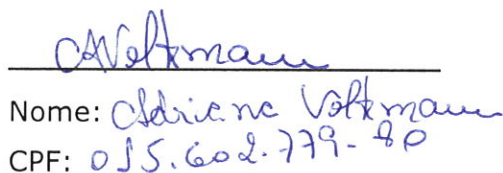 AVolkmann
Nome: Adriane Volkmann
CPF: 015.602.779-80